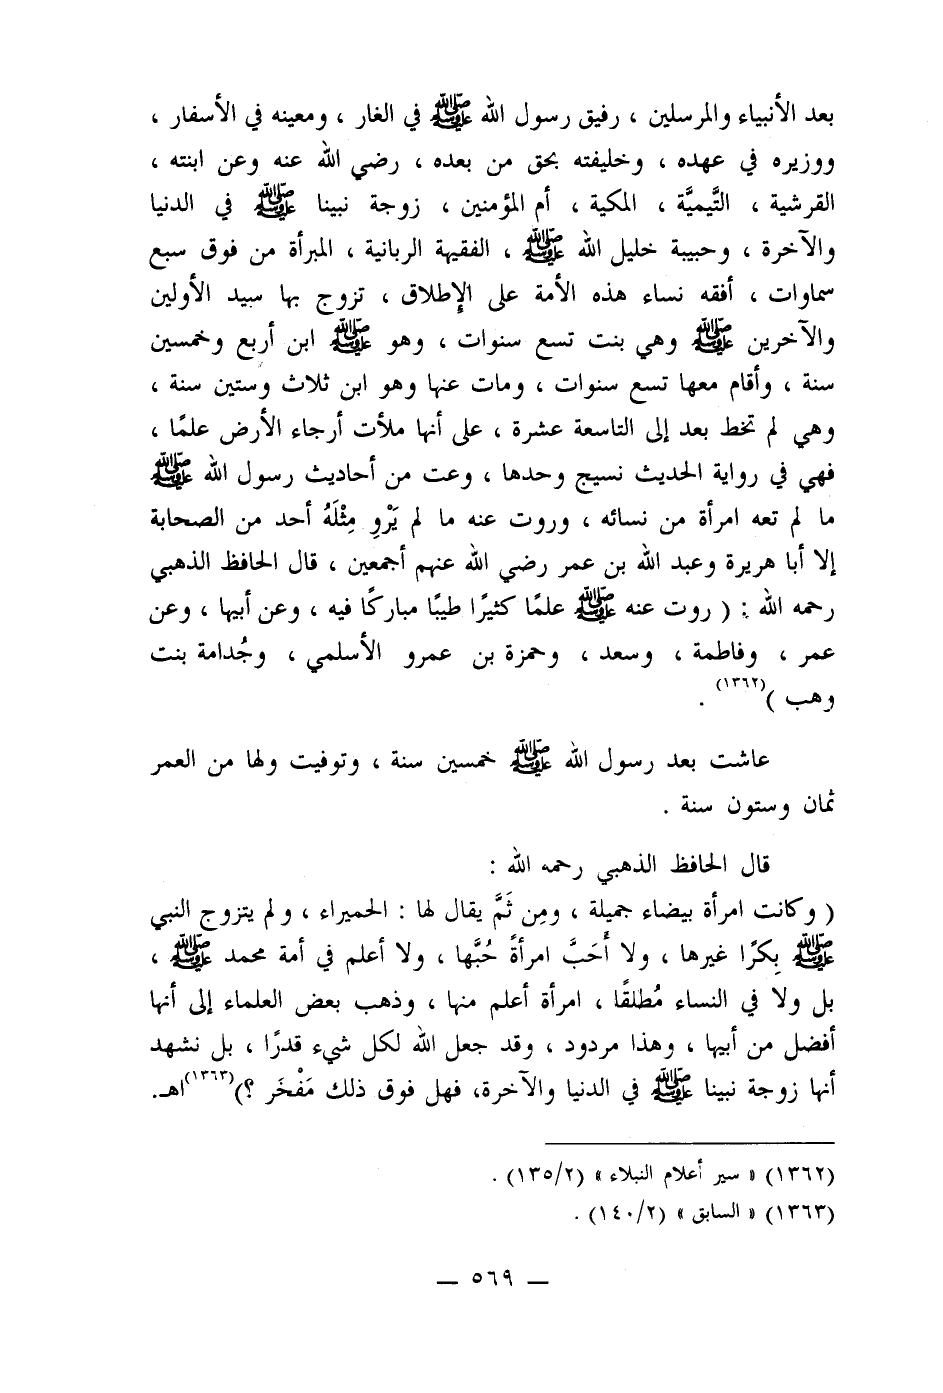 بعد الأنبياء والمرسلين ، رفيق رسول الله ﷺ في الغار ، ومعينه في الأسفار ،
ووزيره في عهده ، وخليفته بحق من بعده ، رضي الله عنه وعن ابنته ،
القرشية ، التَّيميَّة ، المكية ، أم المؤمنين ، زوجة نبينا ﷺ في الدنيا
والآخرة ، وحبيبة خليل الله ﷺ ، الفقيهة الربانية ، المبرأة من فوق سبع
سماوات ، أفقه نساء هذه الأمة على الإِطلاق ، تزوج بها سيد الأولين
والآخرين ﷺ وهي بنت تسع سنوات ، وهو ﷺ ابن أربع وخمسين
سنة ، وأقام معها تسع سنوات ، ومات عنها وهو ابن ثلاث وستين سنة ،
وهي لم تخط بعد إلى التاسعة عشرة ، على أنها ملأت أرجاء الأرض علمًا ،
فهي في رواية الحديث نسيج وحدها ، وعت من أحاديث رسول الله ﷺ
ما لم تعه امرأة من نسائه ، وروت عنه ما لم يَرْوِ مِثْلَهُ أحد من الصحابة
إلا أبا هريرة وعبد الله بن عمر رضي الله عنهم أجمعين ، قال الحافظ الذهبي
رحمه الله : ( روت عنه ﷺ علمًا كثيرًا طيبًا مباركًا فيه ، وعن أبيها ، وعن
عمر ، وفاطمة ، وسعد ، وحمزة بن عمرو الأسلمي ، وجُدامة بنت
وهب )(١٣٦٢) .
عاشت بعد رسول الله ﷺ خمسين سنة ، وتوفيت ولها من العمر
ثمان وستون سنة .
قال الحافظ الذهبي رحمه الله :
( وكانت امرأة بيضاء جميلة ، ومِن ثَمَّ يقال لها : الحميراء ، ولم يتزوج النبي
ﷺ بِكرًا غيرها ، ولا أَحَبَّ امرأةً حُبَّها ، ولا أعلم في أمة محمد ﷺ ،
بل ولا في النساء مُطلقًا ، امرأة أعلم منها ، وذهب بعض العلماء إلى أنها
أفضل من أبيها ، وهذا مردود ، وقد جعل الله لكل شيء قدرًا ، بل نشهد
أنها زوجة نبينا ﷺ في الدنيا والآخرة، فهل فوق ذلك مَفْخَر ؟)(١٣٦٣)اهـ.
(١٣٦٢) « سير أعلام النبلاء » (١٣٥/٢) .
(١٣٦٣) « السابق » (١٤٠/٢) .
— ٥٦٩ —